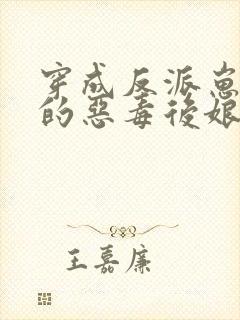 穿成反派崽
的惡毒後娘
王嘉廉